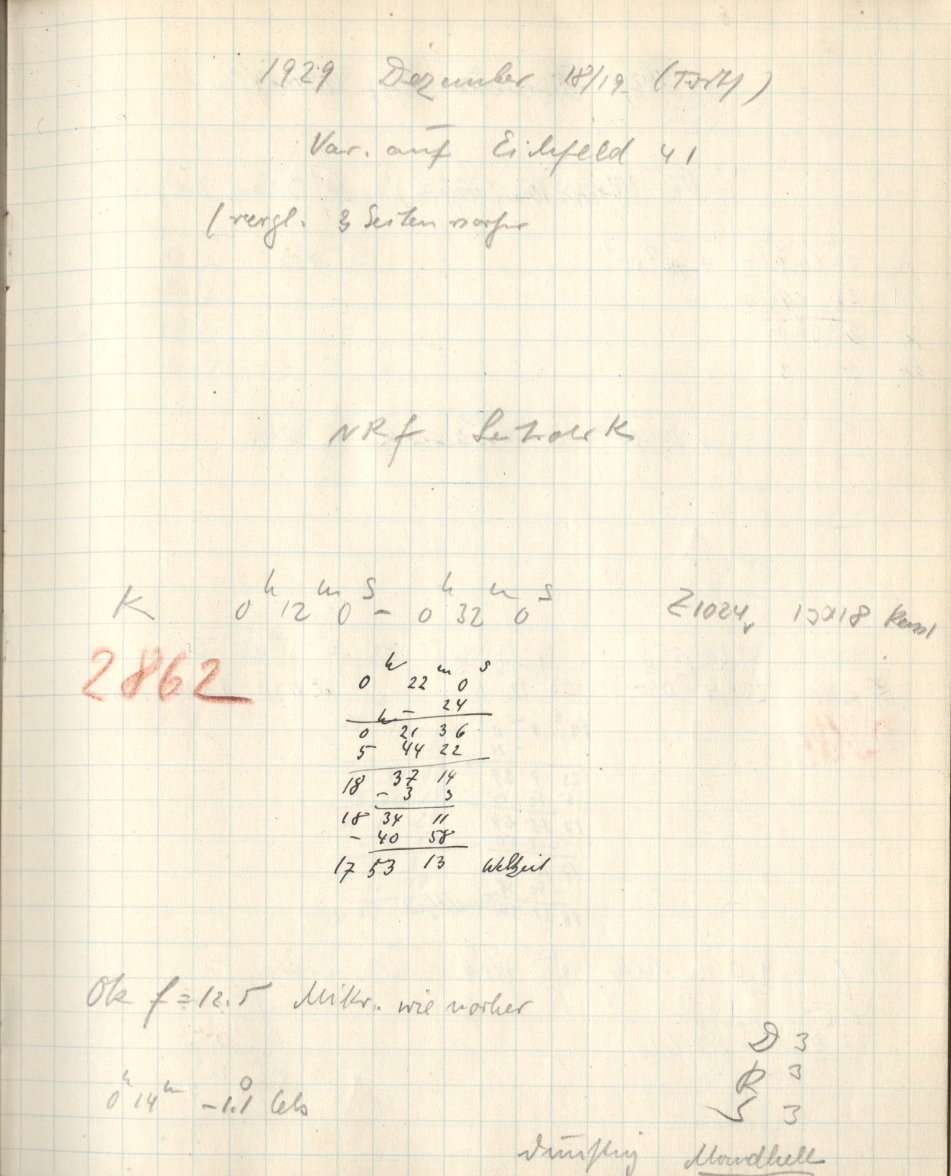 1929 Dezember 18/19
Var. auf Eichfeld 41
(vergl. 3 Seiten vorher
NRf
K 0h 12m 0s - 0h 32m 0s Z1024,
2862
0h 22m 0s
- 24
0h 21 36
5 44 22
18 37 14
- 3 3
18 34 11
- 40 58
17 53 13 Weltzeit
Ok f = 12.5 Mikr. wie vorher
D 3
R 3
0h 14m -1.1° Cels
S 3
dunstig Mondhell